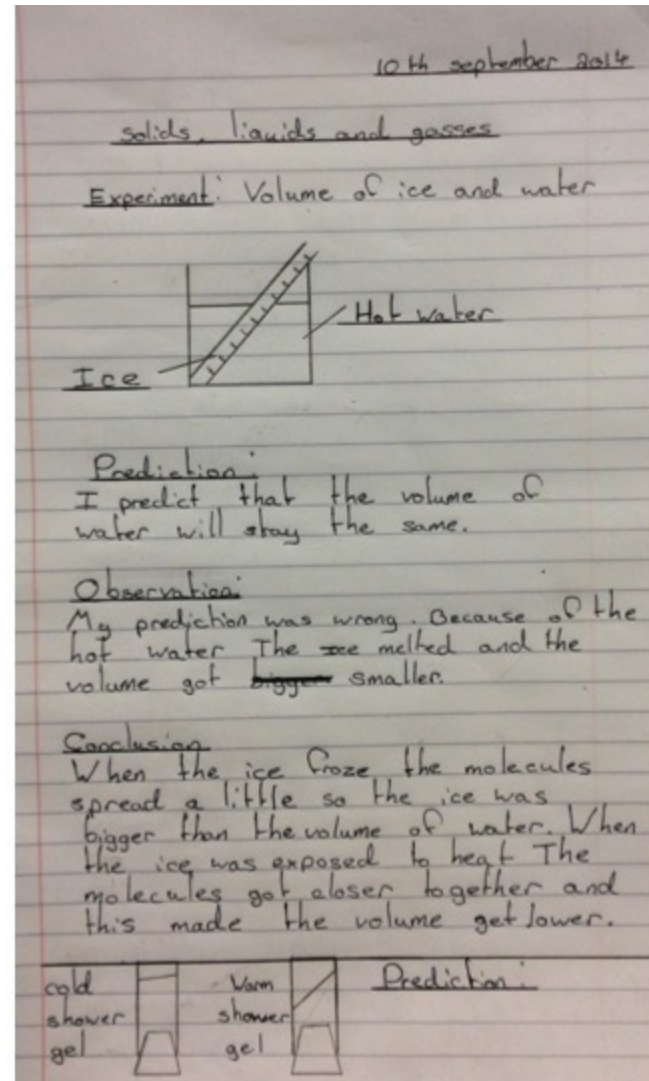 10th september 2014
solids, liquids and gasses
Experiment: Volume of ice and water
Hot water
Ice
Prediction:
I predict that the volume of
water will stay the same.
Observation:
My prediction was wrong. Because of the
hot water The Ice melted and the
volume got bigger smaller.
Conclusion
When the ice froze the molecules
spread a little so the ice was
bigger than the volume of water. When
the ice was exposed to heat The
molecules got closer together and
this made the volume get lower.
cold
shower
gel
Warm
shower
gel
Prediction: